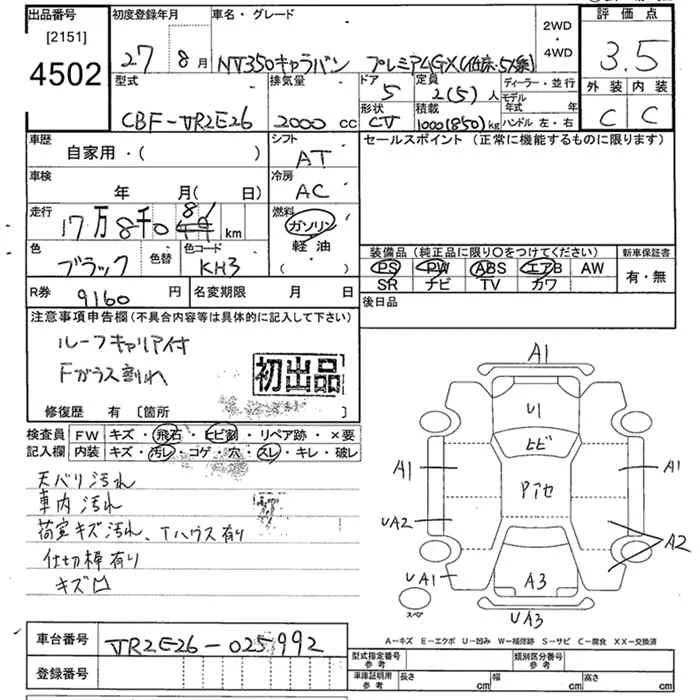 出品番号 初度登録年月 車名・グレード 2WD・4WD 評価点
[2151]
4502
27年 8月 NV350キャラバン プレミアムGX 3.5
型式 排気量 ドア 定員 ディーラー・並行
CBF-VR2E26 2000cc 5 2(5)人 モデル年式 年
形状 積載 ハンドル 左・右
CV 1000(850)kg
外装 内装
C C
車歴 シフト セールスポイント(正常に機能するものに限ります)
自家用・( ) AT
車検 冷房
年 月( 日) AC
走行 燃料
17万8千0 km ガソリン
軽油・( )
色 色替 色コード
ブラック KH3
装備品(純正品に限り○をつけてください) 新車保証書
PS PW ABS エアB AW 有・無
SR ナビ TV カワ
R券 9160円 名変期限 月 日 後日品
注意事項申告欄(不具合内容等は具体的に記入して下さい)
ルーフキャリア付
Fガラス割れ
初出品
修復歴 有 [箇所 ]
検査員 FW キズ・飛石・ヒビ割・リペア跡・×要
記入欄 内装 キズ・汚レ・コゲ・穴・スレ・キレ・破レ
天バリ汚れ
車内汚れ
荷室キズ汚れ、Tハウス有り
仕切棒有り
キズ凹
A1
U1
ヒビ
A1 A1
Pアセ
UA2 A2
UA1 A3
スペア UA3
A-キズ E-エクボ U-凹み W-補修跡 S-サビ C-腐食 XX-交換済
車台番号 VR2E26-025992
登録番号
型式指定番号 参考 類別区分番号 参考
車庫証明用 参考 長さ cm 幅 cm 高さ cm